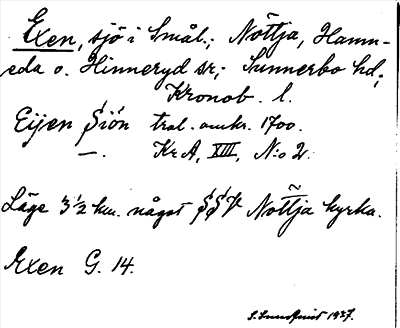 Exen, sjö i Smål.; Nöttja, Hamn-
eda o. Hinneryd sn; Sunnerbo hd;
Kronob. l.
Eijen Siön tral. omkr. 1700.
—. Kr A, XIII, N:o 2.
Läge 3 1/2 km. något SSV Nöttja kyrka.
Exen G. 14.
S. Lundquist 1927.